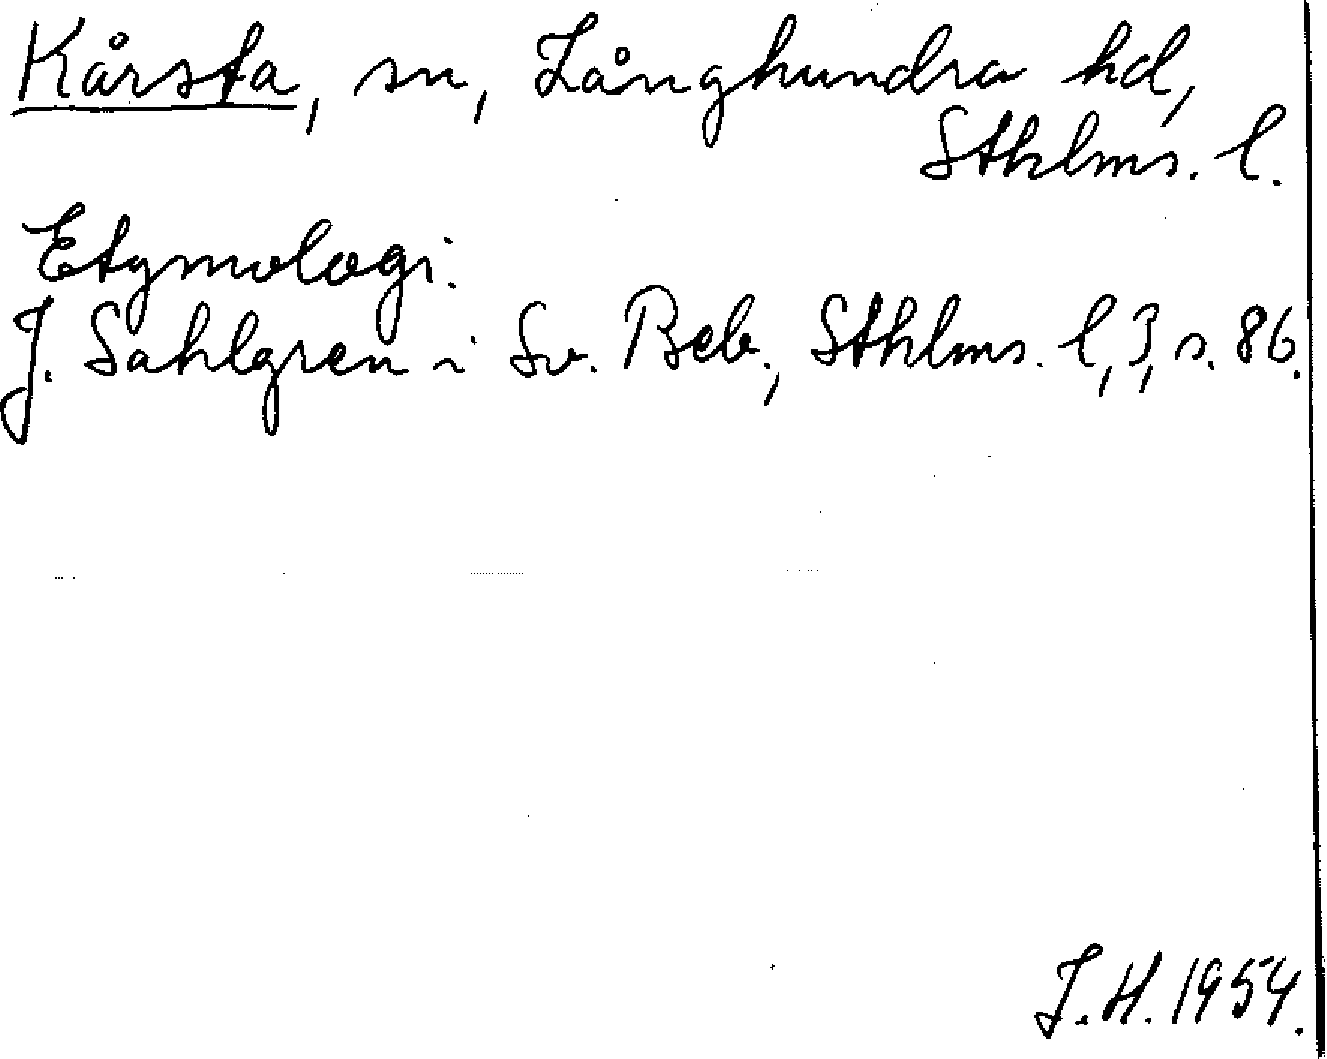 Kårsta, sn, Långhundra hd,
Sthlms. l.
Etymologi.
J. Sahlgren i Sv. Beb., Sthlms. l, 3, s. 86.
J. H. 1954.